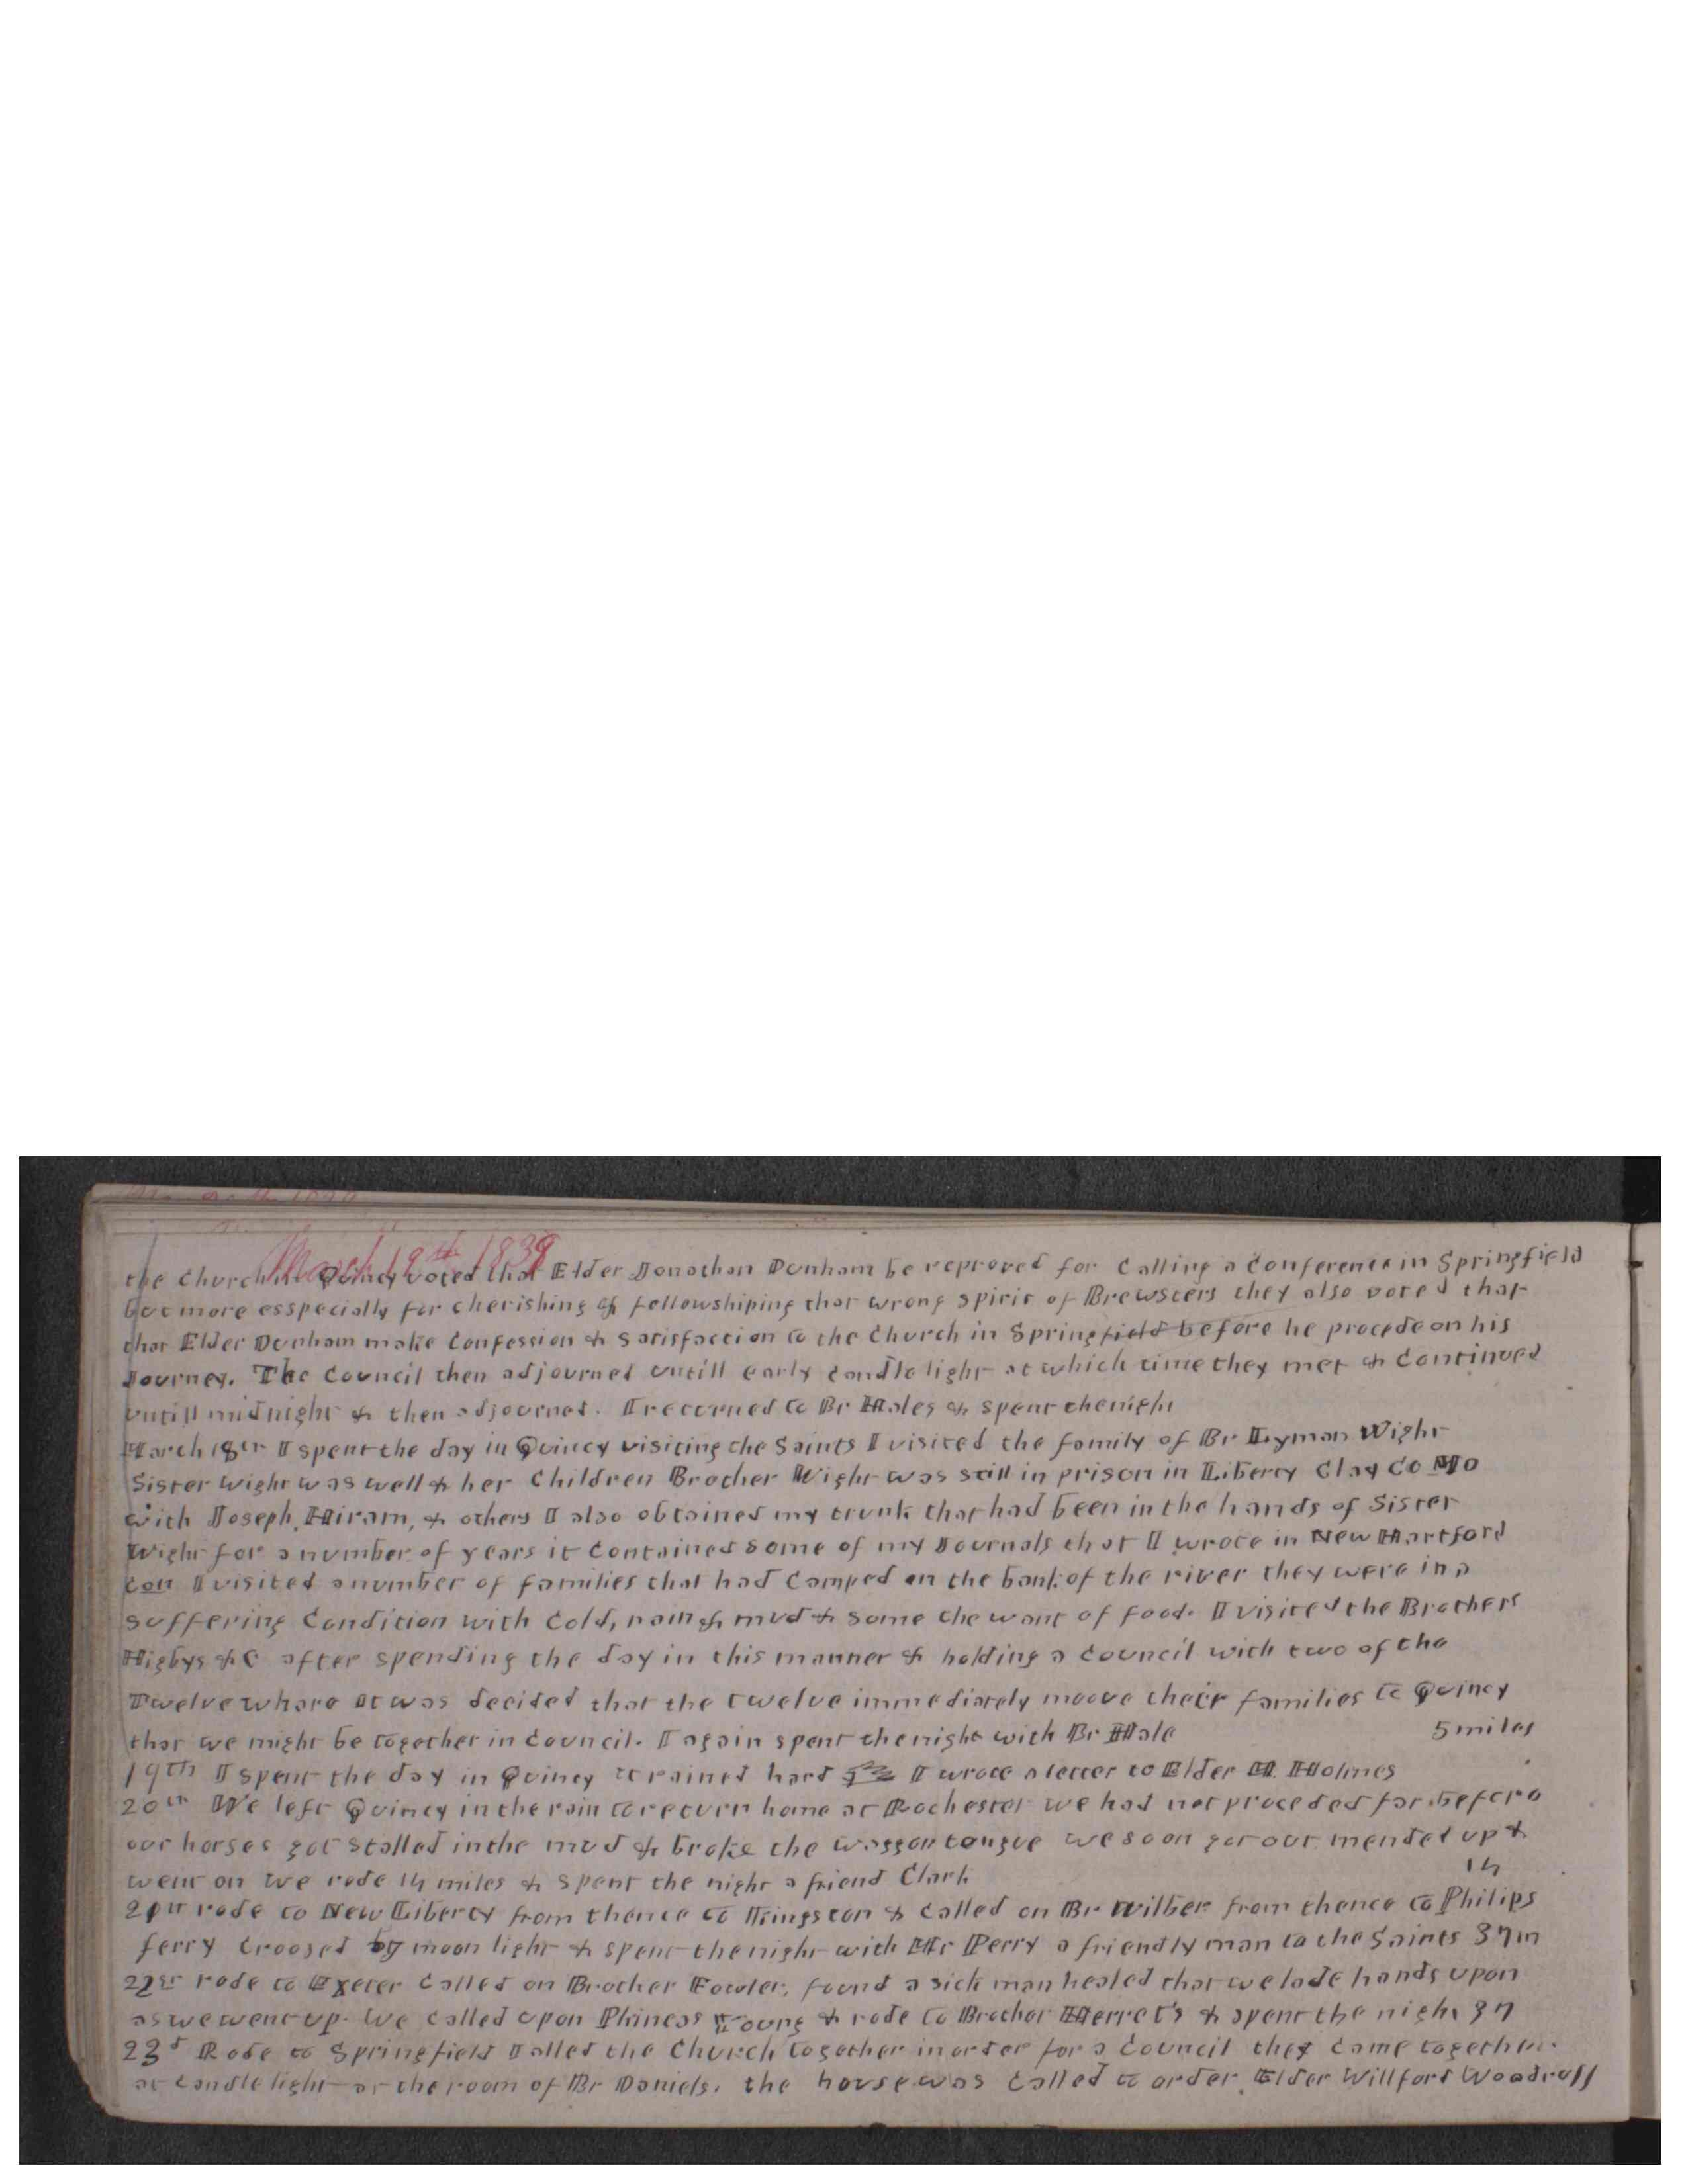 March 18th 1839
the Church in Quincy voted that Elder Jonathan Dunham be reproved for Calling a Conference in Springfield
but more esspecially for cherishing & fellowshiping that wrong spirit of Brewsters they also voted that
that Elder Dunham make Confession & Satisfaction to the Church in Springfield before he procede on his
Journey. The Council then adjourned untill early candle light at which time they met & Continued
untill midnight & then adjourned. I returned to Br Hales & spent the night
March 18th I spent the day in Quincy visiting the Saints I visited the family of Br Lyman Wight
Sister Wight was well & her Children Brother Wight was still in prison in Liberty Clay Co Mo
with Joseph, Hiram, & others I also obtained my trunk that had been in the hands of Sister
Wight for a number of years it Contained some of my Journals that I wrote in New Hartford
Con I visited a number of families that had Camped on the bank of the river they were in a
suffering Condition with Cold, rain & mud & some the want of food. I visited the Brothers
Higbys &C after spending the day in this manner & holding a Council with two of the
Twelve whare it was decided that the twelve immediately moove their families to Quincy
that we might be together in Council. I again spent the night with Br Hale 5 miles
19th I spent the day in Quincy it rained hard I wrote a letter to Elder M. Holmes
20th We left Quincy in the rain to return home at Rochester we had not proceded far before
our horses got stalled in the mud & broke the waggon tongue we soon got out mended up &
went on we rode 14 miles & spent the night a friend Clark 14
21st rode to New Liberty from thence to Kingston & Called on Br Wilber from thence to Philips
ferry Croosed by moon light & spent the night with Mr Perry a friendly man to the Saints 37 m
22st rode to Exeter Called on Brother Fowler, found a sick man healed that we lade hands upon
as we went up. We called upon Phineas Young & rode to Brother Herret's & spent the night 37
23d Rode to Springfield Called the Church together in order for a Council they Came together
at Candle light at the room of Br Daniels. the house was Called to order Elder Willford Woodruff